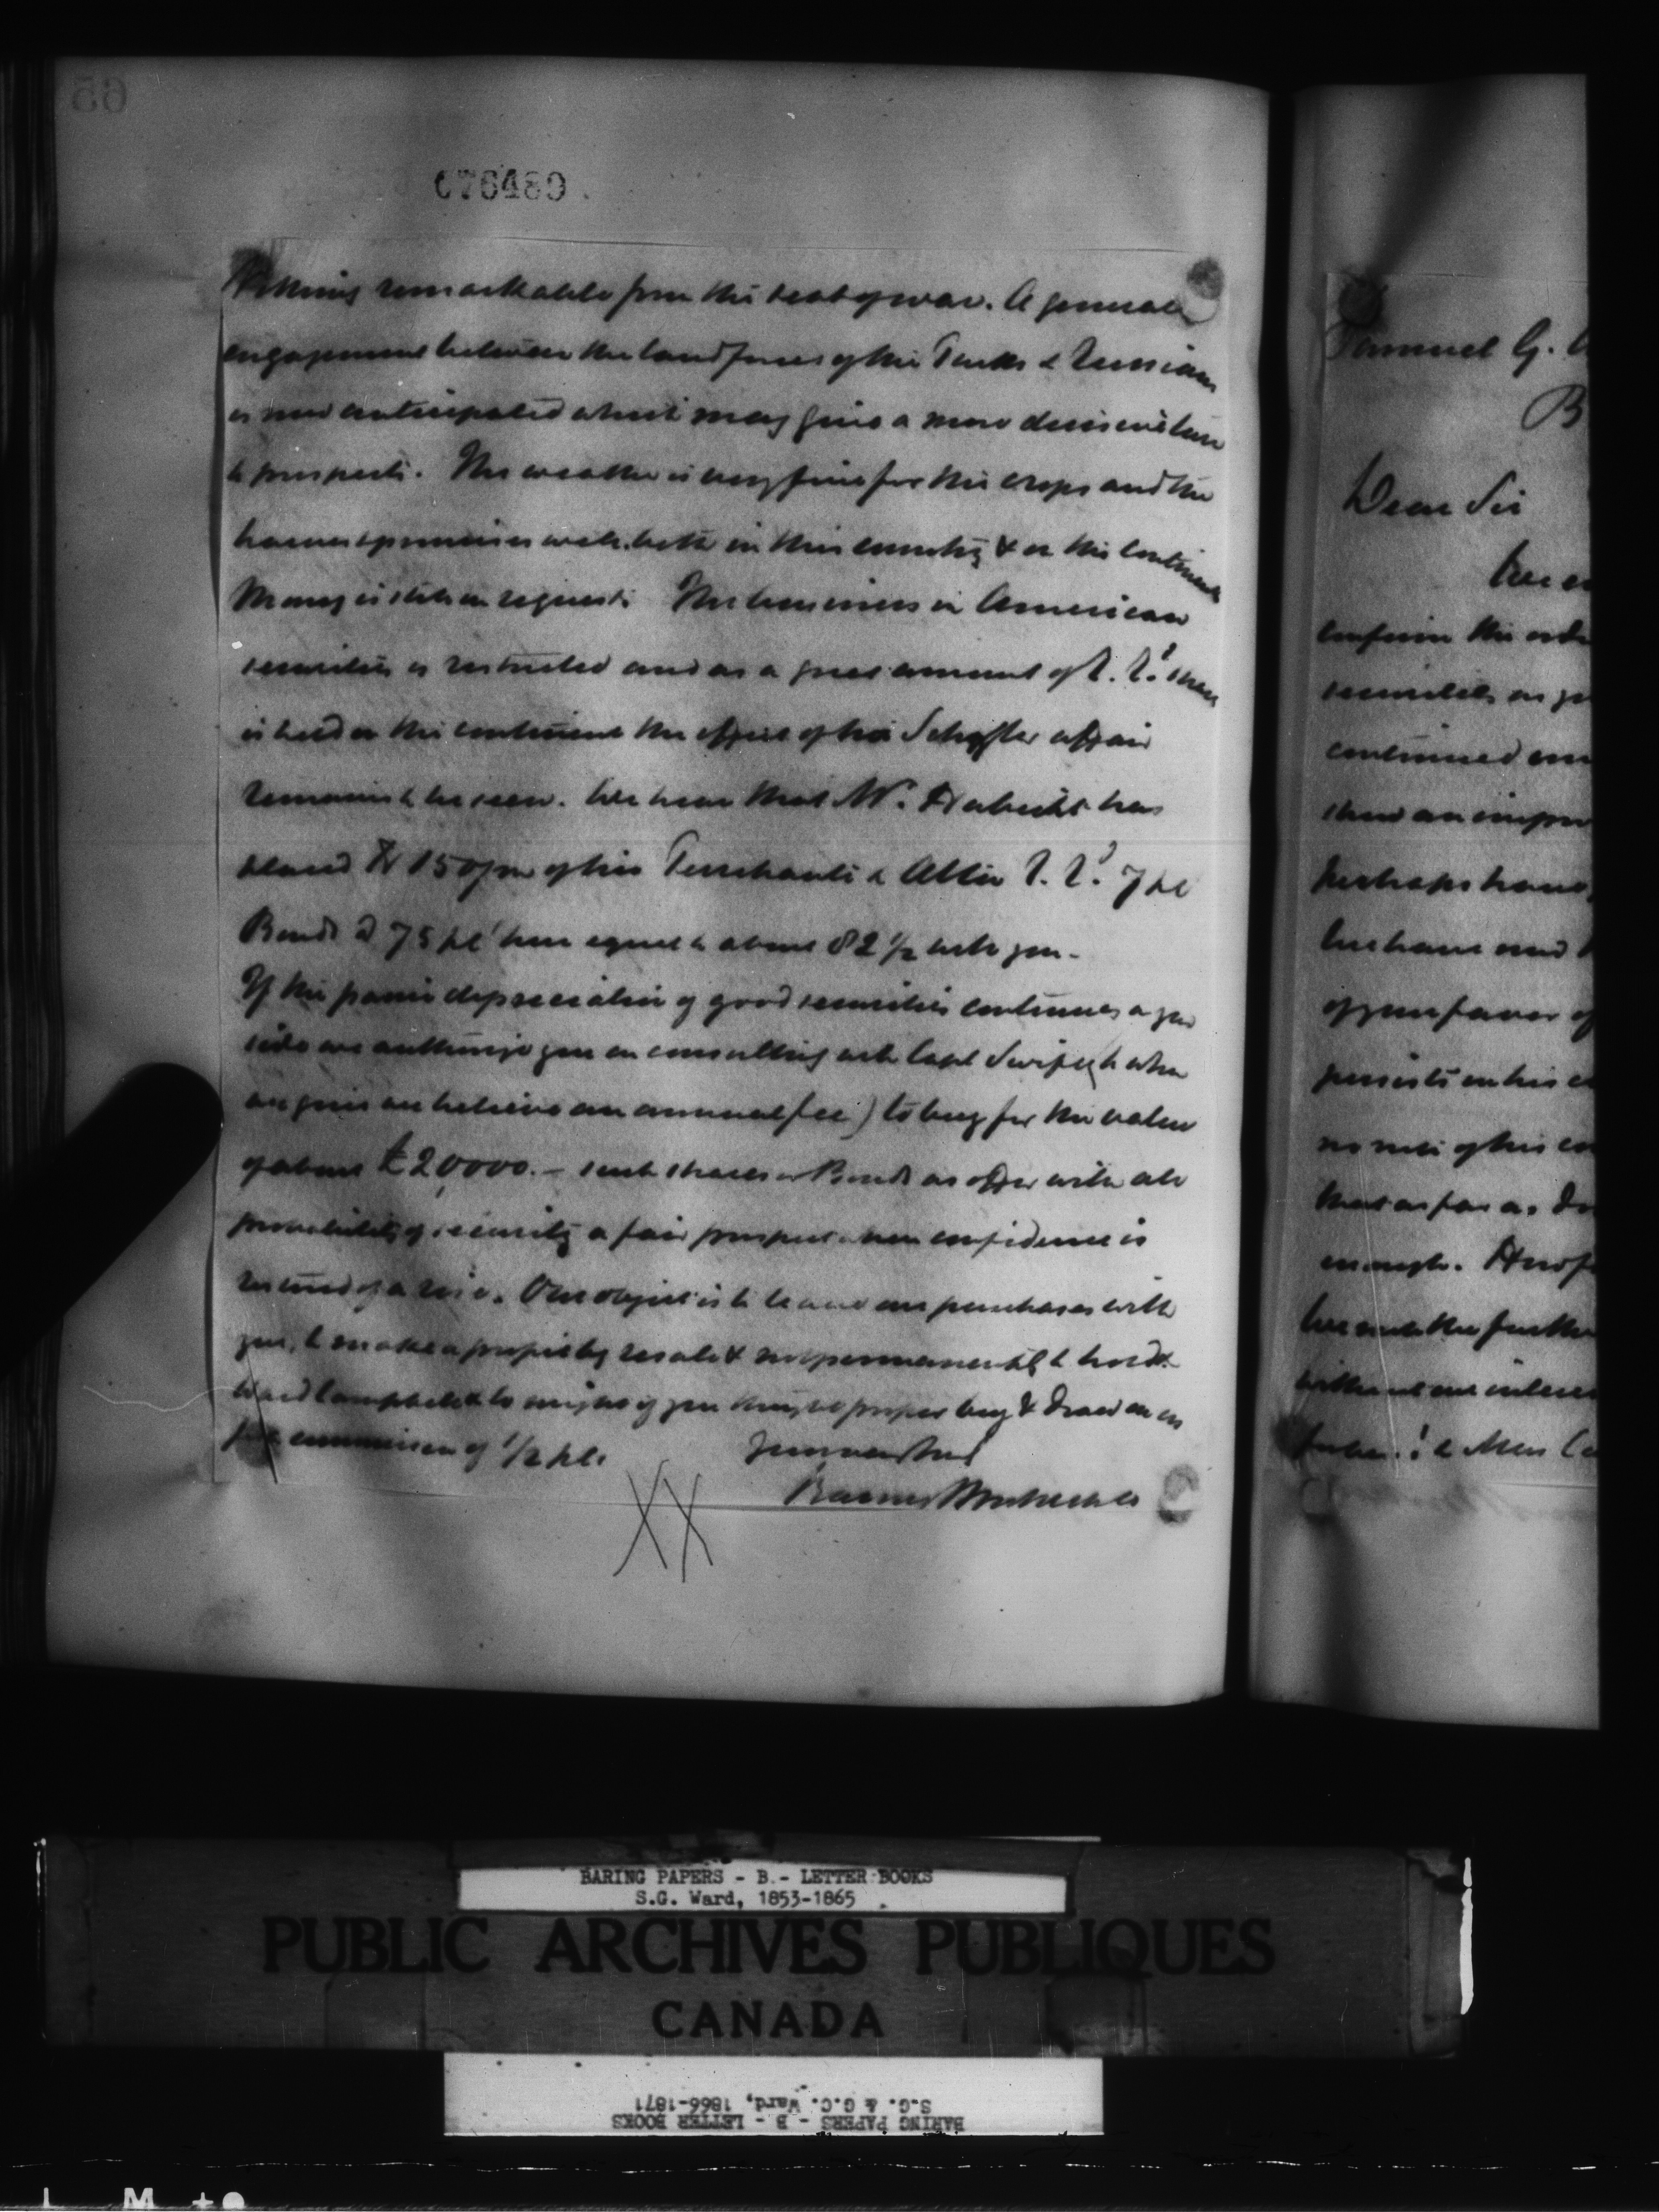 65
C76489
Nothing remarkable from the seat of war. A general
engagement between the land forces of the Turks & Russians
is now anticipated which may give a more decisive turn
to prospects. The weather is very fine for the crops and the
harvest promises well both in this country & on the Continent
Money is still in request. The business in American
securities is restricted and as a great amount of R. Rd shares
is held on the continent the effect of the Schuyler affair
remains to be seen. We hear that Mr. Habicht has
placed 150/m of his Terrehaute & Alton R. Rd 7 pCt
Bonds @ 75 pCt here equal to about 82 1/2 with you.
If the panic depreciation of good securities continues on your
side we authorize you on consulting with Capt Swift (to whom
we give we believe an annual fee) to buy for the value
of about £20,000.— such shares or Bonds as offer with all
probability of security a fair prospect when confidence is
restored of a rise. Our object is to leave our purchases with
you, to make a profit by resale & not permanently to hold.
Ward Campbell & Co might if you thought proper buy & draw on us
for commission of 1/2 pCt.
Yours truly
Baring Brothers & Co
XX
Samuel G.
B
Dear Sir
We
confirm the
securities
continued
show an
perhaps have
we have
of your favor of
persists in his
no note of his
that as far as
enough.
We note the further
without our
BARING PAPERS - B.- LETTER BOOKS
S.G. Ward, 1853-1865
PUBLIC ARCHIVES PUBLIQUES
CANADA
BARING PAPERS - B - LETTER BOOKS
S.G. & G.C. Ward, 1866-1871